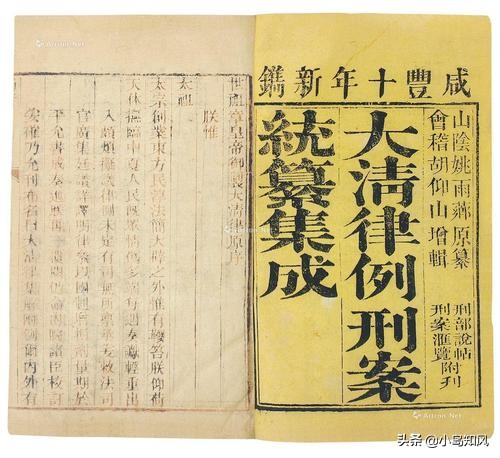 咸豐十年新鐫
山陰姚雨薌原纂
會稽胡仰山增輯
刑部說帖
刑案滙覽附刊
大清律例刑案
統纂集成
世祖章皇帝御製大清律原序
朕惟
太祖
太宗創業東方民淳法簡大辟之外惟有鞭笞朕仰荷
天休撫臨中夏人民既眾情偽多端每遇奏讞輕重出
入頗煩擬議律例未定有司無所稟承爰敕法司
官廣集廷議詳譯明律參以國制增損劑量期於
平允書成奏進朕再三覆閱仍命內院諸臣校訂
妥確乃允刊布名曰大清律集解附例爾內外有
Artron.Net
Artron.Net
头条 @小鸟知风